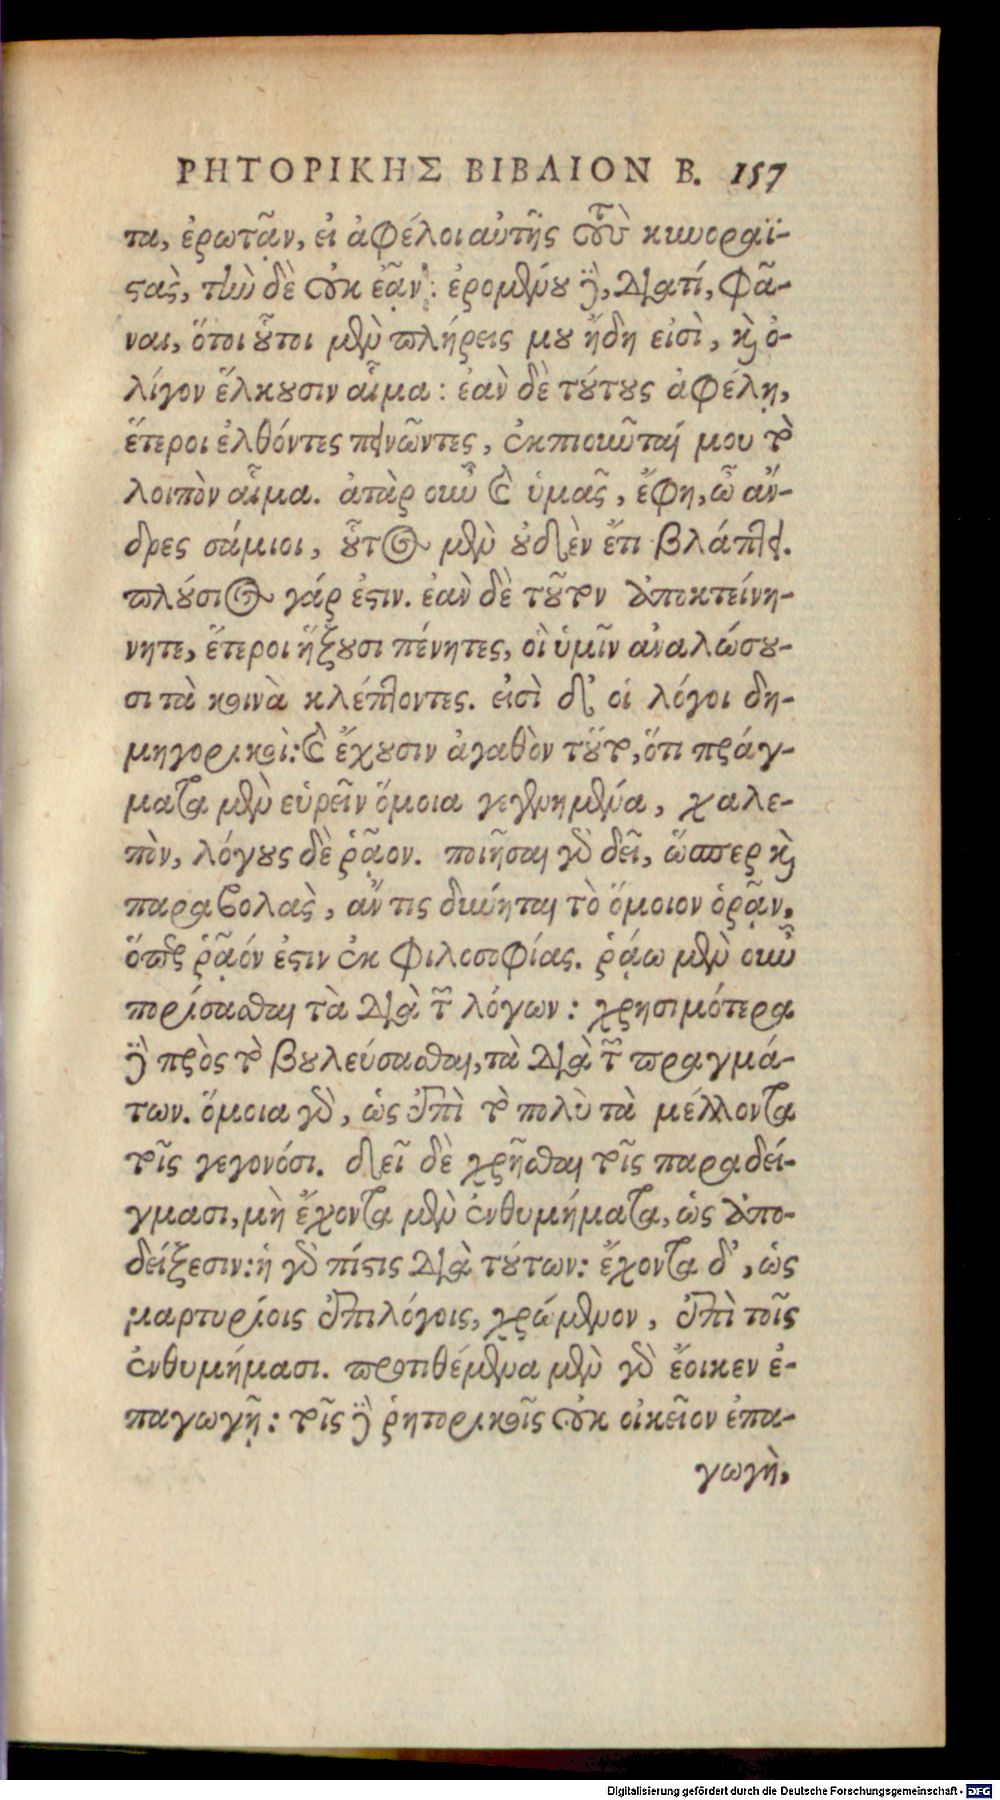 ΡΗΤΟΡΙΚΗΣ ΒΙΒΛΙΟΝ Β. 157
τα, ἐρωτᾷν, εἰ ἀφέλοι αὐτῆς τοὺς κυνοραϊ-
στὰς, τὴν δὲ οὐκ ἐᾷν: ἐρομένου δὲ, διατί, φᾶ-
ναι, ὅτοι οὗτοι μὲν πλήρεις μου ἤδη εἰσὶ, καὶ ὀ-
λίγον ἕλκουσιν αἷμα: ἐὰν δὲ τούτους ἀφέλῃ,
ἕτεροι ἐλθόντες πεινῶντες, ἐκπιοῦνταί μου τὸ
λοιπὸν αἷμα. ἀτὰρ οὖν καὶ ὑμᾶς, ἔφη, ὦ ἄν-
δρες σάμιοι, οὗτος μὲν οὐδὲν ἔτι βλάπτει.
πλούσιος γάρ ἐστιν. ἐὰν δὲ τοῦτον ἀποκτείνη-
νητε, ἕτεροι ἥξουσι πένητες, οἳ ὑμῖν ἀναλώσου-
σι τὰ κοινὰ κλέπτοντες. εἰσὶ δ' οἱ λόγοι δη-
μηγορικοὶ: καὶ ἔχουσιν ἀγαθὸν τοῦτο, ὅτι πράγ-
ματα μὲν εὑρεῖν ὅμοια γεγενημένα, χαλε-
πὸν, λόγους δὲ ῥᾷον. ποιῆσαι γὰρ δεῖ, ὥσπερ καὶ
παραβολὰς, ἄν τις δύνηται τὸ ὅμοιον ὁρᾷν,
ὅπερ ῥᾷόν ἐστιν ἐκ φιλοσοφίας. ῥᾴω μὲν οὖν
πορίσασθαι τὰ διὰ τῶν λόγων: χρησιμότερα
δὲ πρὸς τὸ βουλεύσασθαι, τὰ διὰ τῶν πραγμά-
των. ὅμοια γὰρ, ὡς ἐπὶ τὸ πολὺ τὰ μέλλοντα
τοῖς γεγονόσι. δεῖ δὲ χρῆσθαι τοῖς παραδεί-
γμασι, μὴ ἔχοντα μὲν ἐνθυμήματα, ὡς ἀπο-
δείξεσιν: ἡ γὰρ πίστις διὰ τούτων: ἔχοντα δ', ὡς
μαρτυρίοις ἐπιλόγοις, χρώμενον, ἐπὶ τοῖς
ἐνθυμήμασι. προτιθέμενα μὲν γὰρ ἔοικεν ἐ-
παγωγῇ: τοῖς δὲ ῥητορικοῖς οὐκ οἰκεῖον ἐπα-
γωγὴ,
Digitalisierung gefördert durch die Deutsche Forschungsgemeinschaft - DFG